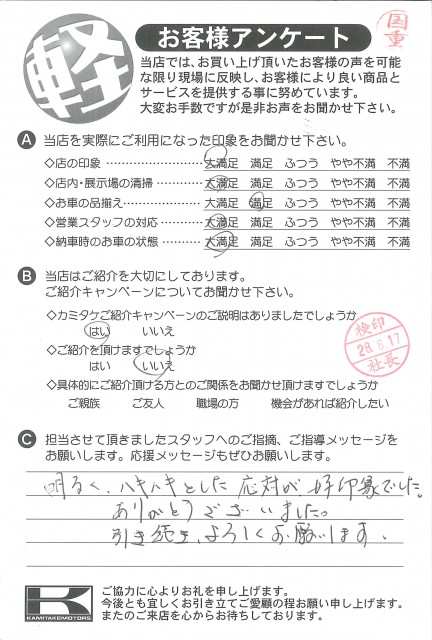 軽
お客様アンケート
国重
当店では、お買い上げ頂いたお客様の声を可能
な限り現場に反映し、お客様により良い商品と
サービスを提供する事に努めています。
大変お手数ですが是非お声をお聞かせ下さい。
A 当店を実際にご利用になった印象をお聞かせ下さい。
◇店の印象 ‥‥‥‥‥‥‥ 大満足 満足 ふつう やや不満 不満
◇店内・展示場の清掃‥‥‥‥ 大満足 満足 ふつう やや不満 不満
◇お車の品揃え‥‥‥‥‥‥ 大満足 満足 ふつう やや不満 不満
◇営業スタッフの対応 ‥‥‥ 大満足 満足 ふつう やや不満 不満
◇納車時のお車の状態‥‥‥‥ 大満足 満足 ふつう やや不満 不満
B 当店はご紹介を大切にしております。
ご紹介キャンペーンについてお聞かせ下さい。
◇カミタケご紹介キャンペーンのご説明はありましたでしょうか
はい いいえ
◇ご紹介を頂けますでしょうか
はい いいえ
検印
28.6.17
社長
◇具体的にご紹介頂ける方とのご関係をお聞かせ頂けますでしょうか
ご親族 ご友人 職場の方 機会があれば紹介したい
C 担当させて頂きましたスタッフへのご指摘、ご指導メッセージを
お願いします。応援メッセージもぜひお願いします。
明るく、ハキハキとした応対が好印象でした。
ありがとうございました。
引き続き、よろしくお願いします。
K
KAMITAKEMOTORS
ご協力に心よりお礼を申し上げます。
今後とも宜しくお引き立てご愛顧の程お願い申し上げます。
またのご来店を心からお待ちしております。